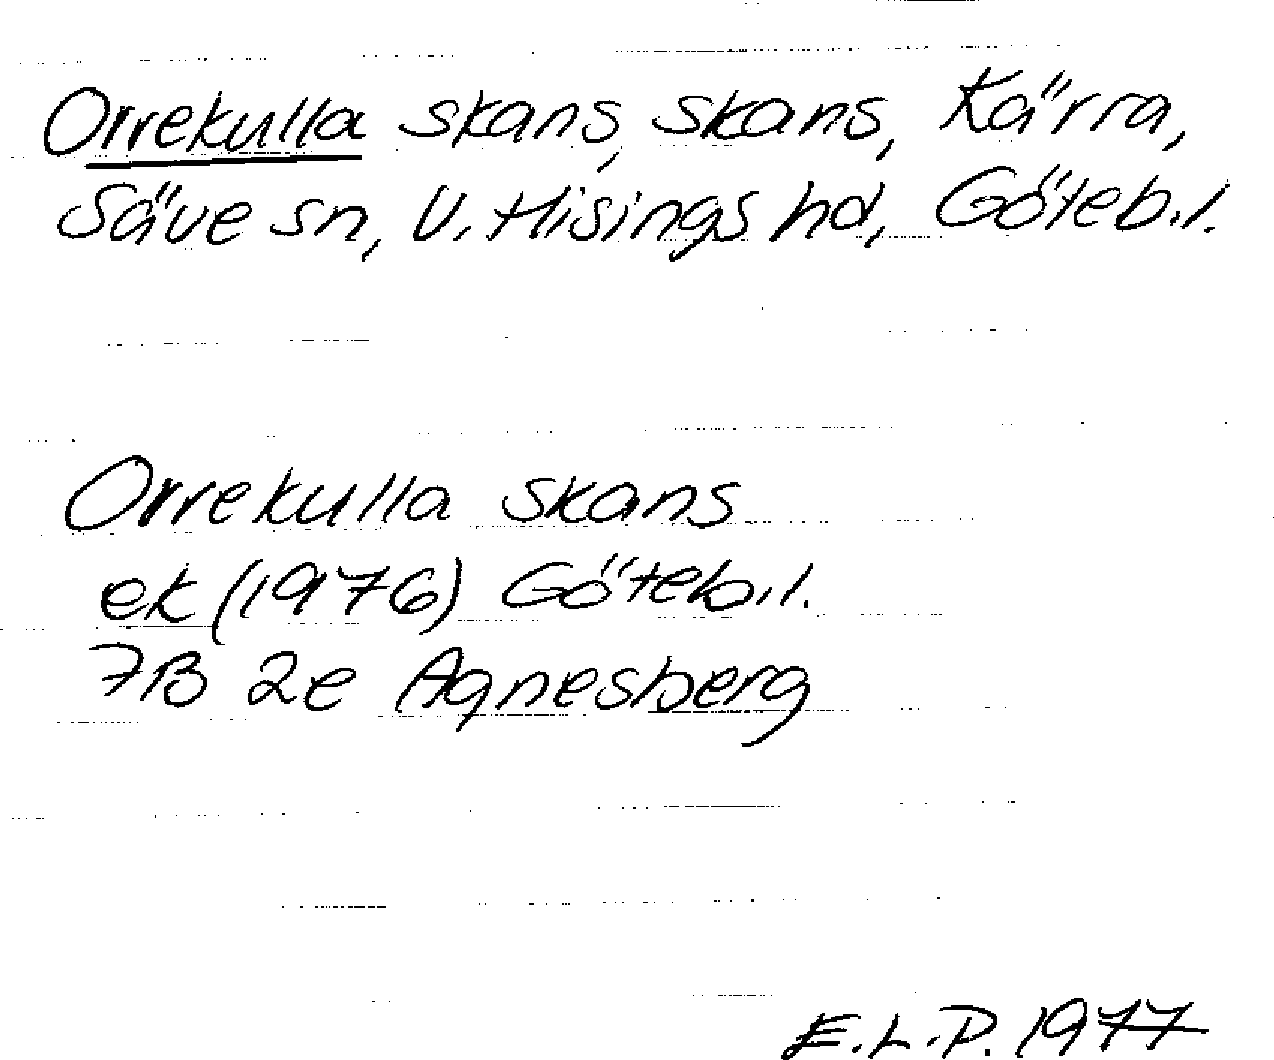 Orrekulla skans, skans, Kärra,
Säve sn, V. Hisings hd, Göteb.l.
Orrekulla skans
ek (1976) Göteb.l.
7B 2e Agnesberg
E.L.P. 1977